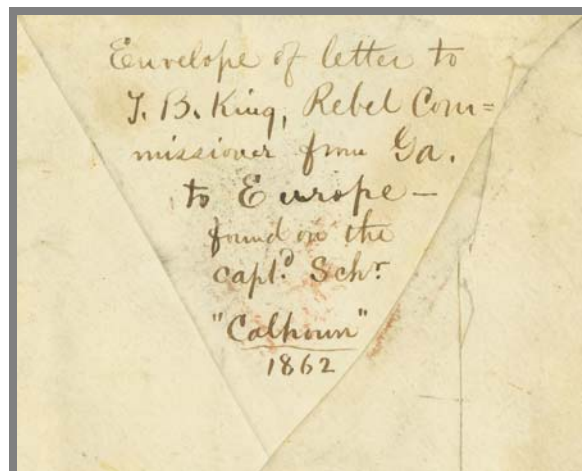 Envelope of letter to
T. B. King, Rebel Com=
missioner from Ga.
to Europe —
found on the
capt.d Schr.
"Calhoun"
1862